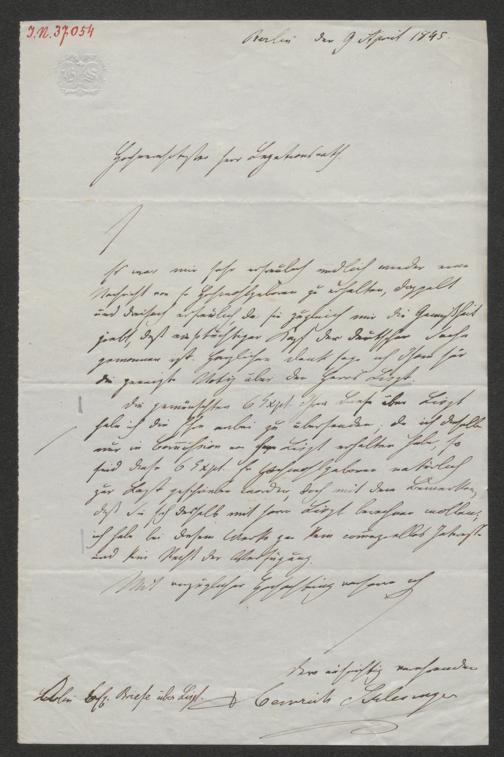 I.N. 37.054
Berlin den 9 April 1845.
Hochverehrtester Herr Legationsrath
Es war mir sehr erfreulich endlich wieder eine
Nachricht von Hochwohlgeboren zu erhalten, doppelt
und dreifach erfreulich da sie zugleich mir die Gewißheit
giebt, daß der deutschen Sache
gewonnen ist. Herzlichen Dank sage ich Ihnen für
die geneigte Notiz über den Herrn Liszt.
Die gewünschten 6 Expl. Ihrer Briefe über Liszt
habe ich die Ehre anbei zu übersenden; da ich dieselben
nur in Commission von Herrn Liszt erhalten habe, so
sind diese 6 Expl. Hochwohlgeboren natürlich
zur Last geschrieben worden, doch mit dem Bemerken,
daß Sie sich deshalb mit Herrn Liszt berechnen wollen;
ich habe bei diesem Werke gar kein Interesse
und kein Recht der Verfügung.
Mit vorzüglicher Hochachtung verharre ich
Ihr aufrichtig verehrender
Heinrich Schlesinger
Briefe über Liszt.